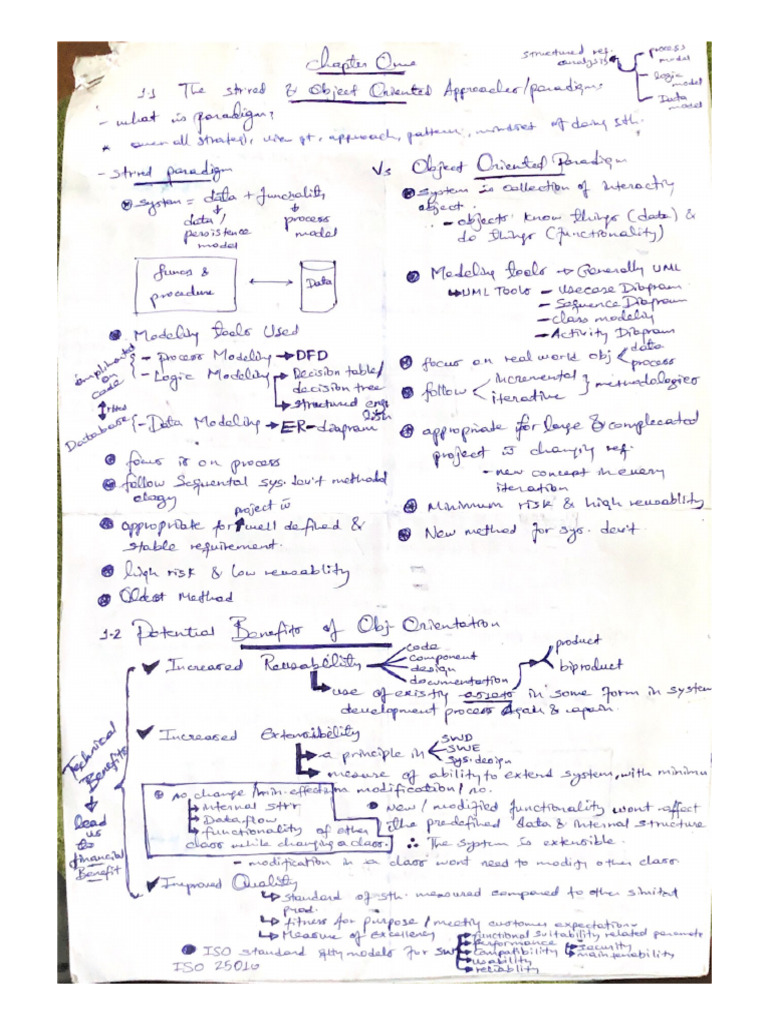 Chapter One
structured req. analysis
process model
Logic model
Data model
1.1 The strired & Object Oriented Approaches/paradigms
- what is paradigm?
* over all strategy, view pt, approach, pattern, mindset of doing sth.
- strred paradigm Vs Object Oriented Paradigm
System = data + functnality
data/ persistence model
process model
funcs & procedure
Data
Modeling tools Used
- Process Modeling → DFD
- Logic Modeling → Decision table/
decision tree
→ structured eng
lish
implimented on code
Database
- Data Modeling → ER-diagram
focus is on process
follow Sequental sys. dev't methodol
ology
project is
appropriate for well defined &
stable requirement.
high risk & low reusablity
Oldest Method
System is collection of interactiy
object.
- objects know things (data) &
do things (functionality)
Modeling tools → Generally UML
↳ UML Tools - Usecase Diagram
- Sequence Diagram
- class modeling
- Activity Diagram
focus on real world obj
data
process
follow
incremental
iterative
} methodologies
appropriate for large & complecated
project is changing req.
- new concept in every
iteration
Minimum risk & high reusablity
New method for sys. dev't
1.2 Potential Benefits of Obj Orientation
✔ Increased Reusability
code
component
design
documentation
product
biproduct
↳ use of existiy assets in some form in system
development process Again & again.
✔ Increased Extensibility
→ a principle in
SWD
SWE
sys. design
→ measure of ability to extend system, with minimu
m modification / no.
no change / min. effect
→ internal strr
→ Dataflow
→ functionality of other
class while changing a class.
New / modified functionality wont affect
the predefined data & internal structure
∴ The system is extensible.
- modification in a class wont need to modify other class.
Technical Benefits
lead us to financial Benefit
✔ Improved Quality
↳ standard of sth. measured compared to other similat
prod.
↳ fitness for purpose / meetiy customer expectations
↳ Measure of excellency
ISO standard qlty models for SW
ISO 25010
functional suitability related paramete
performance
compatibility
usability
reliability
security
maintenability